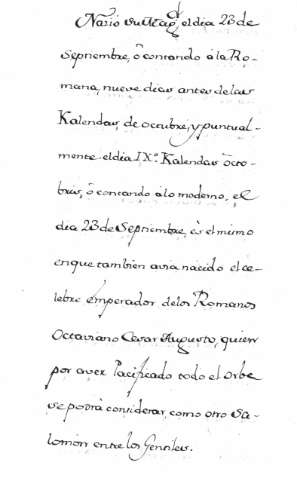 Nazio su Mag.d el dia 23 de
Septiembre, ô contando â la Ro-
mana, nueve dias antes de las
Kalendas de octubre, y puntual-
mente el dia IX.º Kalendas octo-
bris, ô contando â lo moderno, el
dia 23 de Septiembre, ês el mismo
en que tambien avia nacido el ce-
lebre Emperador de los Romanos
Octaviano Cesar Augusto, quien
por aver Pacificado todo el Orbe
se podrâ considerar, como otro Sa-
lomôn entre los Gentiles.